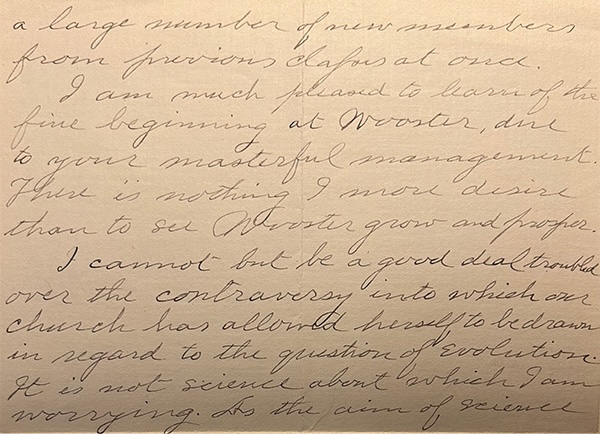 a large number of new members
from previous classes at once.
I am much pleased to learn of the
fine beginning at Wooster, due
to your masterful management.
There is nothing I more desire
than to see Wooster grow and prosper.
I cannot but be a good deal troubled
over the contraversy into which our
church has allowed herself to be drawn
in regard to the question of Evolution.
It is not science about which I am
worrying. As the aim of science